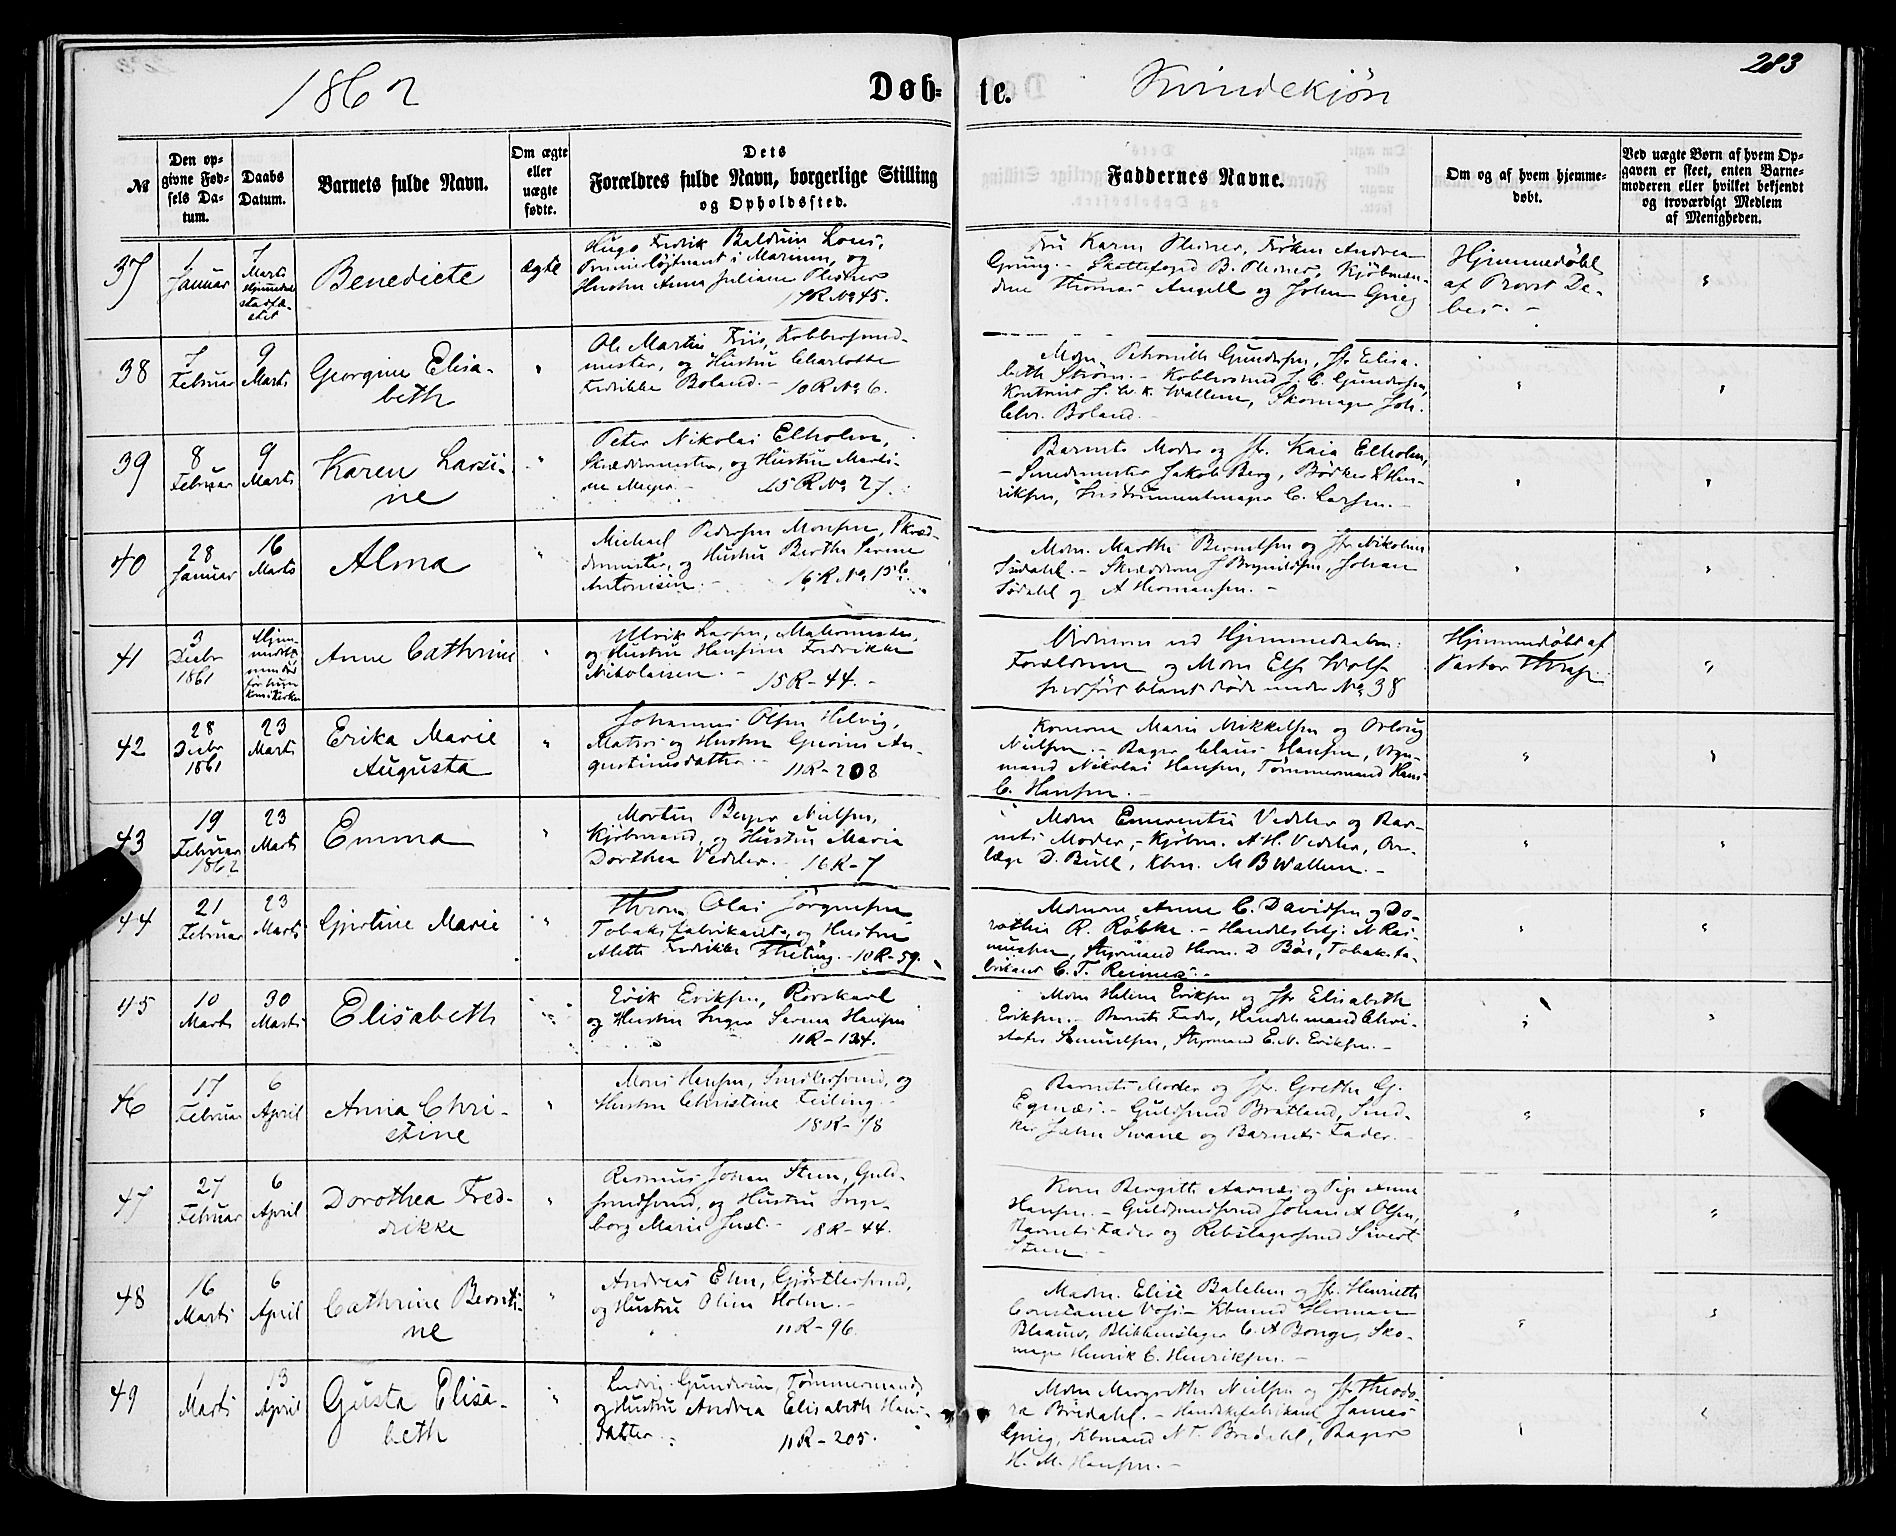 283
1862
Døb- te.
Kvindekjön
№
Den opgivne Fødsels Datum.
Daabs Datum.
Barnets fulde Navn.
Om ægte eller uægte fødte.
Dets Forældres fulde Navn, borgerlige Stilling og Opholdssted.
Faddernes Navne.
Om og af hvem hjemmedøbt.
Ved uægte Børn af hvem Opgaven er skeet, enten Barnemoderen eller hvilket bekjendt og troværdigt Medlem af Menigheden.
37
1 Januar
7 Marts
Benedicte
ægte
Hugo Fredrik Balduin
Premierløjtnant i Marinen, og
Hustru Anna Juliane
17R No 45.
Fru Karen Frøken Andrea
Grüng. - Skattefoged B. Kjöbmæn-
dene Thomas Angell og John Grieg
Hjemmedöbt
af Provst De-
bes. -
38
7 Februar
9 Marts
Georgine Elisa-
beth
"
Ole Martin Friis, Kobbersmed-
mester, og Hustru Charlotte
Fredrikke Boland. - 10R No 6.
Mdm. Petronille Gundersen, Jfr Elisa-
beth Ström. - Kobbersmed J. C. Gundersen,
Wallem, Skomager Joh.
Chr. Boland. -
39
8 Februar
9 Marts
Karen Larsi-
ne
"
Peter Nikolai Elholm,
Skræddermester, og Hustru Marti-
ne Meyer. - 15R No 27.
Barnets Moder og Jfr. Kaia Elholm,
- Smedmester Jakob Berg, Bödker Hen-
riksen, Instrumentmager C. Larsen. -
40
28 Januar
16 Marts
Alma
"
Michael Pedersen Monsen, Skræd-
dermester, og Hustru Berthe Serine
Antonisen. - 16R No 15b.
Mdm. Marthe Berntsen og Jfr Nikoline
Södahl. - Skrædderne J Brynildsen, Johan
Södahl og A Thomassen. -
41
3 Decbr 1861
Anne Cathrine
"
Ulrik Larsen, Malermester,
og Hustru Hansine Fredrikke
Nikolaisen. - 15R - 44 -
Vidnerne ved Hjemmedaaben:
Forældrene og Mdm Else Wolf
blandt døde under No 38
Hjemmedöbt af
Pastor
42
28 Decbr 1861
23 Marts
Erika Marie
Augusta
"
Johannes Olsen Helvig,
Matros og Hustru Au-
gustinusdatter. - 11R - 208
Konerne Marie Mikkelsen og
Nielsen. - Bager Claus Hansen,
mand Nikolai Hansen, Tömmermand Hans
C. Hansen. -
43
19 Februar 1862
23 Marts
Emma
"
Morten Beyer Nielsen,
Kjöbmand, og Hustru Maria
Dorthea Vedeler. - 16R - 7
Mdm Emerentia Vedeler og Bar-
nets Moder, - Kjöbm. A. H. Vedeler, Over-
læge D. Büll, Kbm. M B Wallem. -
44
21 Februar
23 Marts
Gjertine Marie
"
Olai Jörgensen,
Tobaksfabrikant, og Hustru
Alette Fredrikke 10R - 59.
Mdmerne Anne C. Davidsen og Do-
rothea R. Röbke. - Handelsbetj. N Ras-
mussen, Styrmand Herm. D Böe, Tobaksfa-
brikant C. F. Reimers. -
45
10 Marts
30 Marts
Elisabeth
"
Erik Eriksen, Rorskarl
og Hustru Inger Serine Hansen
11R - 134.
Mdm Helene Eriksen og Jfr Elisabeth
Eriksen. - Barnets Fader, Handelsmand Chri-
stofer Samuelsen, Styrmand E. N. Eriksen. -
46
17 Februar
6 April
Anna Chri-
stine
"
Mons Hansen, Snedkersvend, og
Hustru Christine Feiling. -
18R - 78
Barnets Moder og Jfr. Grethe G.
Egenæs. - Guldsmed Bratland, Sned-
ker Jahn Svane og Barnets Fader. -
47
27 Februar
6 April
Dorothea Fred-
rikke
"
Rasmus Johan Steen, Guld-
smedsvend, og Hustru Inge-
borg Marie Juul. - 18R - 44.
Kone Bergitte Aarnæs og Pige Anne
Hansen. - Guldsmedsvend Johan A Olsen,
Barnets Fader og Rebslagersvend Sivert
Steen. -
48
16 Marts
6 April
Cathrine Bernti-
ne
"
Andreas Ehn, Gjörtlersvend,
og Hustru Oline Holm. -
11R - 96.
Madm. Elise Balchen og Jfr. Henriette
Constance Voss. - Kbmand Herman
Blaauw, Blikkenslager C. A Bonge, Sko-
mager Henrik C. Henriksen. -
49
1 Marts
13 April
Gusta Elisa-
beth
"
Ludvig Gundersen, Tömmermand,
og Hustru Andrea Elisabeth Hans-
datter. - 11R - 205.
Mdm Margrethe Nielsen og Jfr Theodo-
ra Bredahl. - Handskefabrikant James
Grieg, Kbmand N T. Bredahl, Bager
H. M. Hansen. -